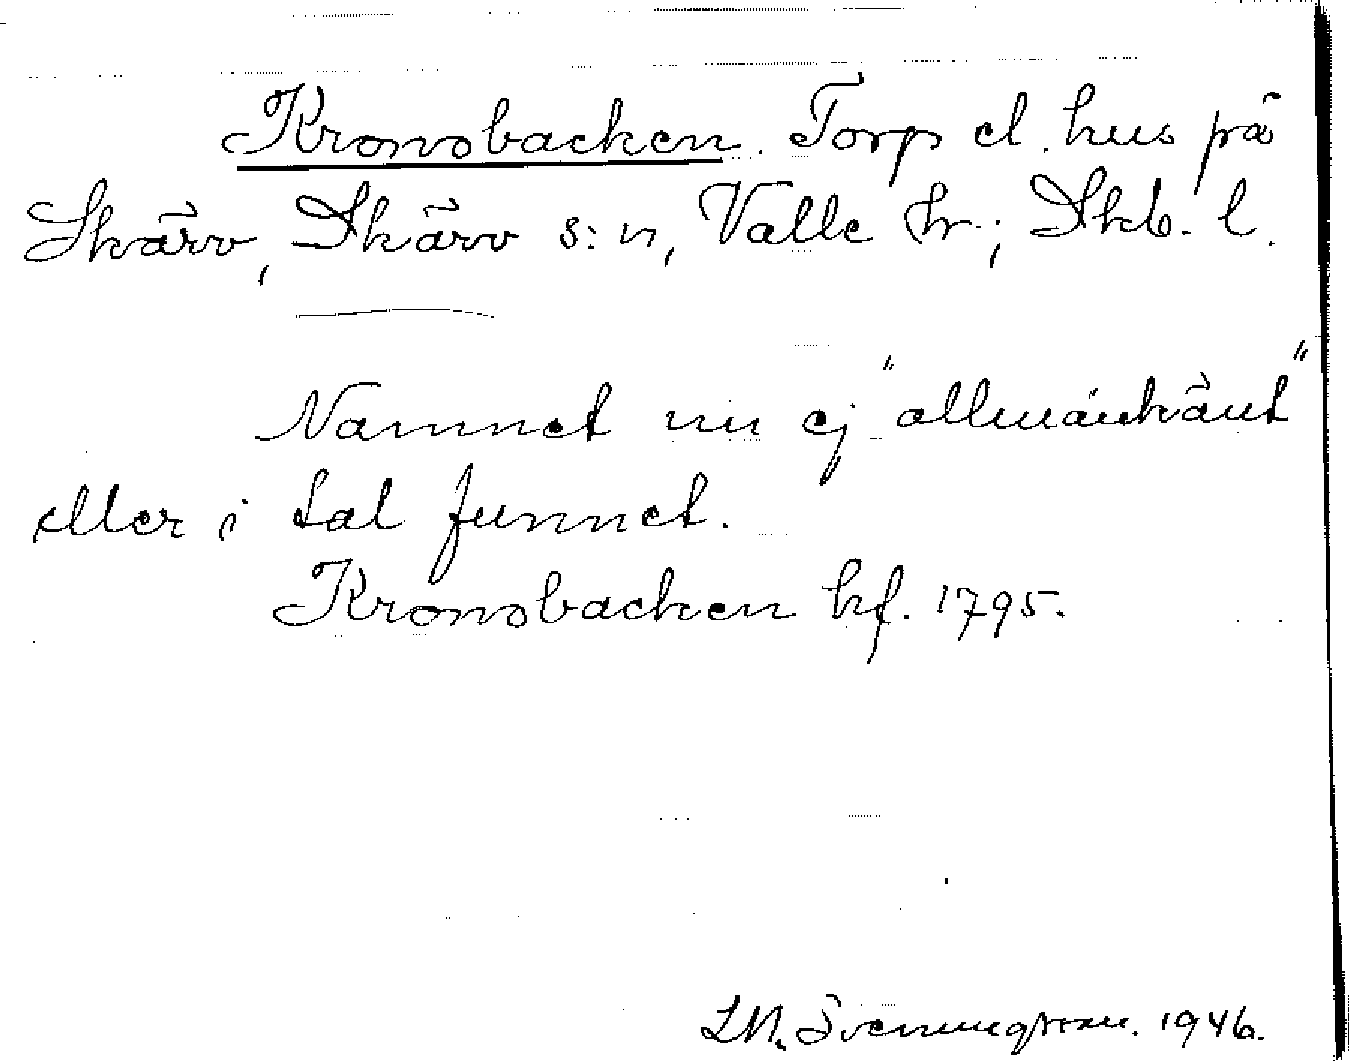 Kronobacken. Torp el. hus på
Skärv, Skärv s:n, Valle hr.; Skb. l.
Namnet nu ej "allmänkänt"
eller i tal funnet.
Kronobacken hf. 1795.
L.M. Svenungsson. 1946.